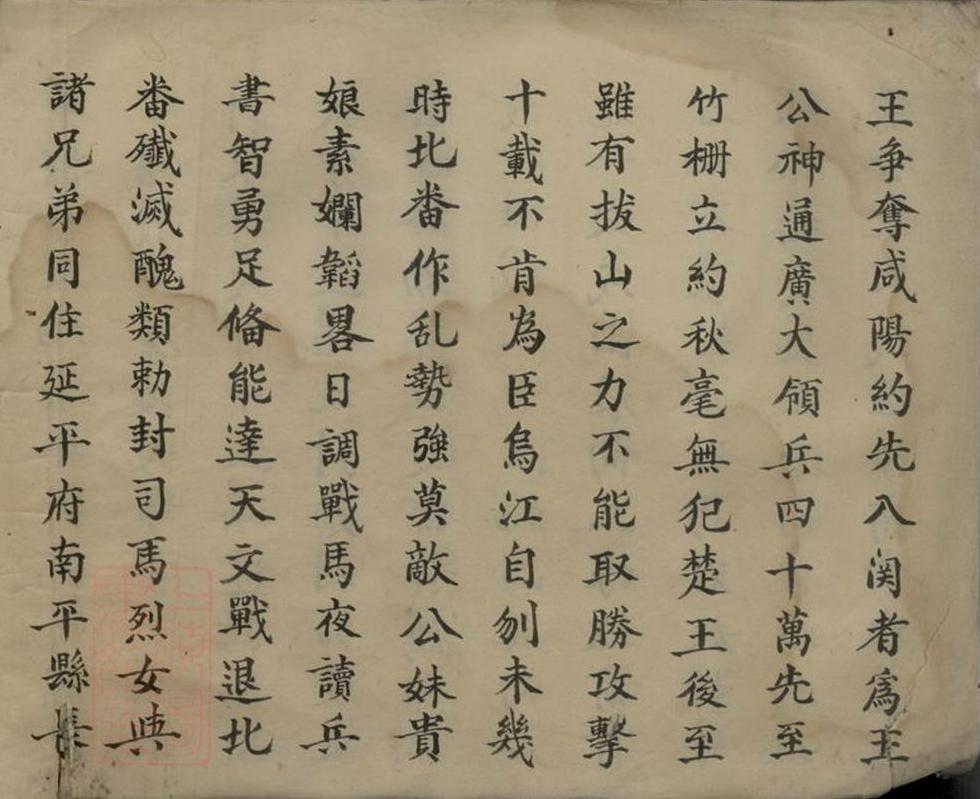 王爭奪咸陽約先入関者爲王
公神通廣大領兵四十萬先至
竹柵立約秋毫無犯楚王後至
雖有拔山之力不能取勝攻擊
十載不肯為臣烏江自刎未幾
時北番作乱勢強莫敵公妹貴
娘素嫻韜畧日調戰馬夜讀兵
書智勇足俻能達天文戰退北
番殲滅醜類勅封司馬烈女典
諸兄弟同住延平府南平縣長